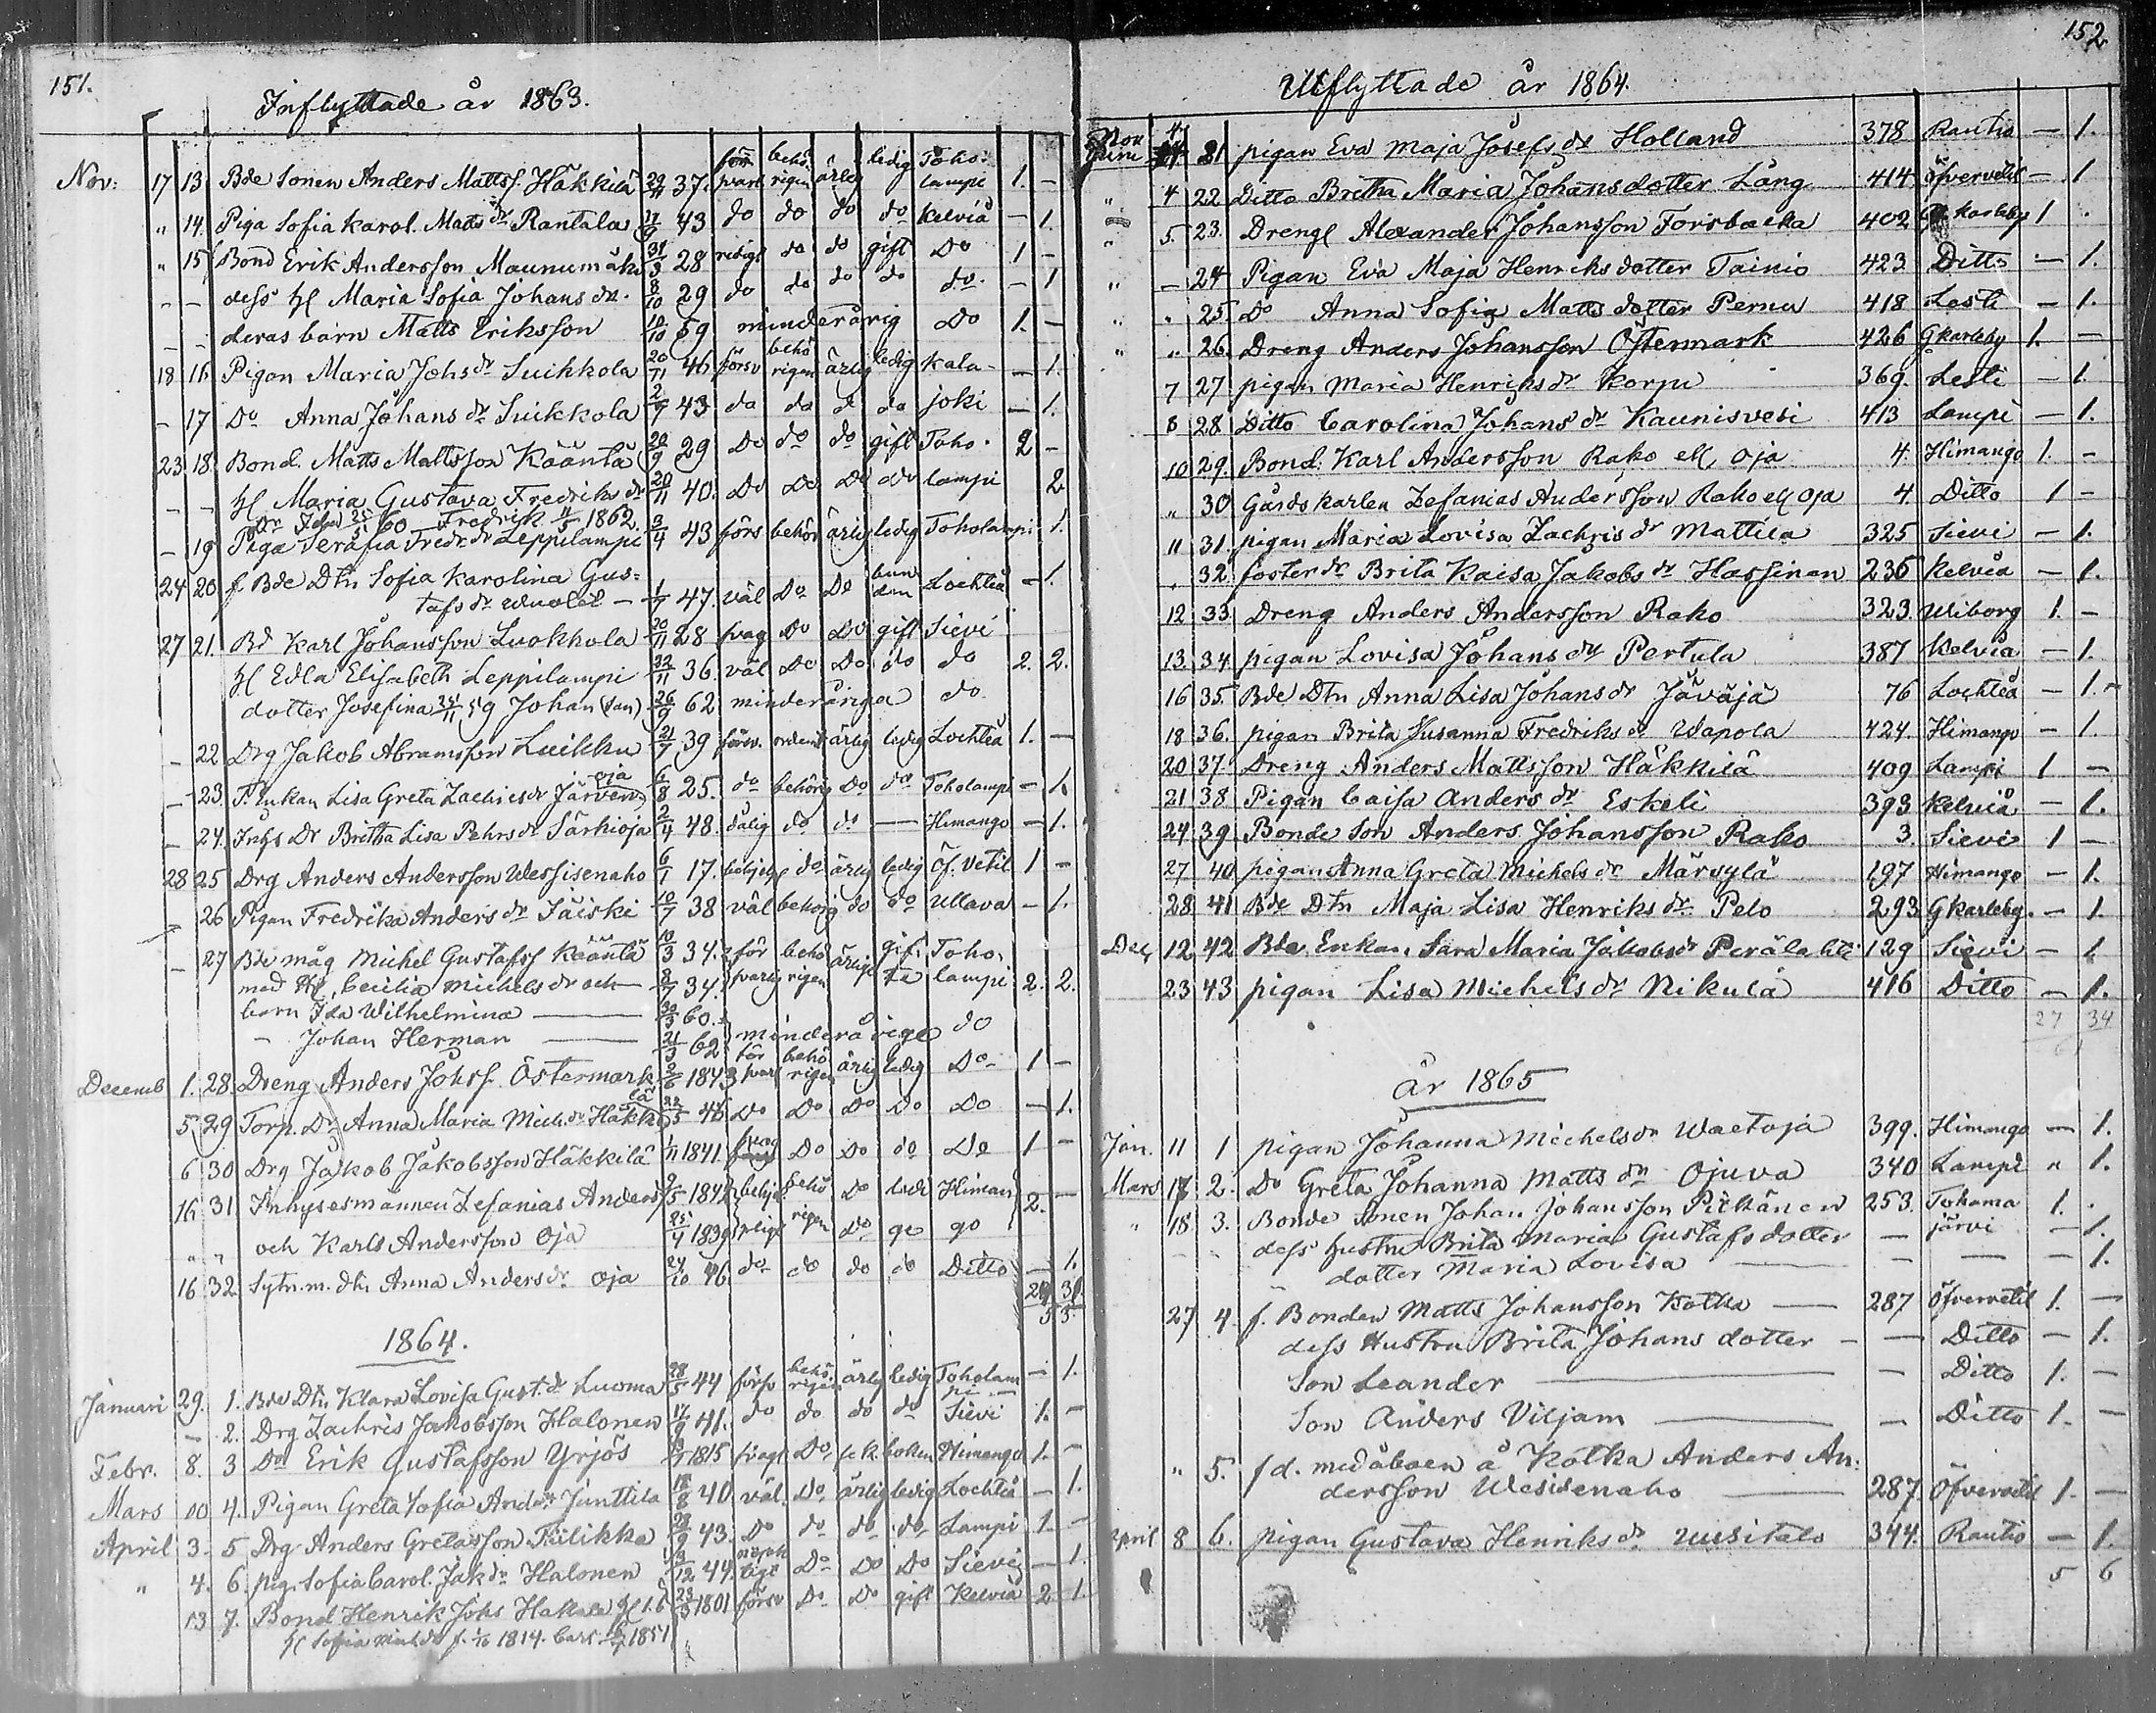 151.
Inflyttade år 1863.
Nov: 17 13 Bde Sonen Anders Mattsf. Häkkilä 37. för svarl behö rigen ärlig ledig Toho: lampi 1. –
" 14. Piga Sofia Karol. Matts dr Rantala 43 do do do do Kelviå – 1.
" 15 Bond Erik Andersson Maunumäki 31/3 28 redigt do do gift Do 1 –
– – dess H Maria Sofia Johans dr. 8/10 29 do do do do do. – 1
– – deras barn Matts Eriksson 10/10 59 minderårig Do 1. –
18 16. Pigan Maria Johs dr Suikkola 20/11 46 försv behö rigen ärlig ledig Kala- – 1.
– 17 Do Anna Johans dr Suikkola 2/7 43 do do d do joki – 1.
23 18. Bond. Matts Mattsson Kääntä 20/9 29 Do do do gift Toho. 2 –
– – H Maria Gustava Fredriks dr 20/11 40. Do Do Do do lampi 2
60 Fredrik 1862.
– 19 Piga Serafia Fredr. dr Leppilampi 3/4 43 förs behör ärlig ledig Toholampi 1.
24 20 f. Bde Dtr Sofia Karolina Gus=
tafs dr – 1/7 47. väl Do Do Lochteå – 1.
27 21. Bd Karl Johansson Luokkola 20/11 28 svag Do Do gift Sievi
H Edla Elisabeth Leppilampi 22/11 36. väl Do Do do do 2. 2.
dotter Josefina 24/11 59 Johan (Son) 26/9 62 minderåriga do
– 22 Drg Jakob Abramsson Luikku 21/7 39 försv. ordent ärlig ledig Lochteå 1. –
– 23. Enkan Lisa Greta Zachris dr Järvenoja 6/8 25. do behörig Do do Toholampi – 1.
– 24. Inhs Dr Britha Lisa Pehrs dr Särkioja 2/4 48. dålig do do — Himango – 1.
28 25 Drg Anders Andersson Wessisenaho 6/1 17. do ärlig ledig Öf. Vetil 1 –
– 26 Pigan Fredrika Anders dr Jäiski 10/7 38 väl behörig do do Ullava – 1.
– 27 Bde måg Michel Gustafss Kääntä 10/3 34. för behö ärlige gif. Toho.
med H. Cecilia Michels dr och 8/7 34. svarlig rigen te lampi 2. 2.
barn Ida Wilhelmina — 60.
– Johan Herman — 21/3 62 minderårige do
Decemb 1. 28. Dreng Anders Johsf. Östermark 2/6 1843 för svarl behö rigen ärlig ledig Do 1 –
5. 29 Torp. Dr Anna Maria Mich. dr Häkkilä 22/5 46 Do Do Do Do Do – 1.
6 30 Drg Jakob Jakobsson Häkkilä 1/11 1841. svag Do Do do De 1 –
16 31 Inhysesmannen Zefanias Anders 5 184 behö Do ledi Himan 2. –
" " och Karls Andersson Oja 25/4 1839 rigen Do ge go
16 32. Sytn. m. dtr. Anna Anders dr Oja 24/10 46. do do do do Ditto – 1.
24 31.
55.
1864.
Januari 29. 1. Bde Dtr. Klara Lovisa Gust. dr Luoma 28/5 44 försv behö. rigen ärlig ledig Toholam pi – 1.
– 2. Drg Zachris Jakobsson Halonen 17/9 41. do do do do Sievi 1. –
Febr. 8. 3 Do Erik Gustafsson Yrjös 1815 svagt Do Himango 1. –
Mars 10 4. Pigan Greta Sofia And. dr Junttila 18/8 40. väl. Do. ärlig ledig Lochteå – 1.
April 3. 5 Drg Anders Gretasson Tulikka 28/9 43. Do do do do Lampi 1 –
" 4. 6. pig. Sofia Carol. Jak dr Halonen 13/12 44. Do Do Do Sievi – 1.
13 7. Bond Henrik Johs Hakala 23/3 1801 försv Do Do gift Kelviå 2 1.
H Sofia Mich dr f. 1/10 1814. Carl 1851
152
Utflyttade år 1864.
Nov 4 21 pigan Eva Maja Josefs dr Holland 378 Rautio – 1.
" 4 22 Ditto Bretha Maria Johansdotter Lång 414 Öfvervetil – 1
" 5. 23. Dreng Alexander Johansson Forsbacka 402 G. Karleby 1 .
" – 24 Pigan Eva Maja Henriksdotter Tainio 423 Ditto – 1.
" " 25. Do Anna Sofia Mattsdotter Pernu 418 Lesti – 1.
" " 26. Dreng Anders Johansson Östermark 426 Gkarleby 1. –
7 27 pigan Maria Henriks dr Korpu 369. Lesti – 1.
8 28 Ditto Carolina Johans dr Kaunisvesi 413 Lampi – 1.
10 29. Bond. Karl Andersson Rako ell. Oja 4. Himango 1. –
" 30 Gårdskarlen Zefanias Andersson Rako ell Oja 4. Ditto 1 –
11 31. pigan Maria Lovisa Zachris dr Mattila 325 Sievi – 1.
" 32. foster dr Brita Kaisa Jakobs dr Hassinen 236 Kelviå – 1.
12 33. Dreng Anders Andersson Rako 323. Wiborg 1. –
13. 34. pigan Lovisa Johans dr Pertula 387 Kelviå – 1.
16 35. Bde Dtn Anna Lisa Johans dr Jäväjä 76 Lochteå – 1.
18 36. pigan Brita Susanna Fredriks dr Wapola 424. Himango – 1.
20 37. Dreng Anders Mattsson Häkkilä 409 Lampi 1 –
21 38 Pigan Caisa Anders dr Eskeli 393 Kelviå – 1.
24 39. Bonde Son Anders Johansson Rako 3. Sievi 1 –
27 40 pigan Anna Greta Michels dr Märsylä 197 Himango – 1.
28 41 Bde Dtn Maja Lisa Henriks dr Pelo 293 Gkarleby. – 1.
Dec. 12 42 Bde. Enkan. Sara Maria Jakobs dr Perälahti 129 Sievi – 1
23 43 pigan Lisa Michels dr Nikula 416 Ditto – 1.
27 34
61
år 1865
Jan. 11 1 pigan Johanna Michels dr Waetoja 399. Himango – 1.
Mars 17 2. Do Greta Johanna Matts dr Ojuva 340 Lampi " 1.
" 18 3. Bonde Sonen Johan Johansson Piekänen 253. Tohama 1. .
– – dess hustru Brita Maria Gustafsdotter – järvi – 1.
dotter Maria Lovisa — – — – 1.
27 4. f. Bonden Matts Johansson Kotka — 287 Öfvervetil 1. –
dess Hustru Brita Johans dotter – – Ditto – 1.
Son Leander — – Ditto 1. –
Son Anders Viljam — – Ditto 1. –
" 5. fd. medåboen å Kotka Anders An:
dersson Wesisenaho — 287. Öfvervetil 1. –
April 8 6. pigan Gustava Henriks dr Uusitalo 344. Rautio – 1.
5 6